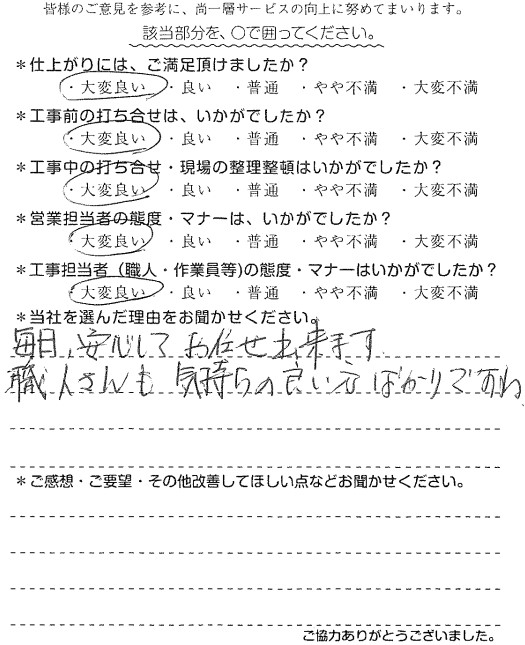 皆様のご意見を参考に、尚一層サービスの向上に努めてまいります。
該当部分を、○で囲ってください。
*仕上がりには、ご満足頂けましたか？
・大変良い ・良い ・普通 ・やや不満 ・大変不満
*工事前の打ち合せは、いかがでしたか？
・大変良い ・良い ・普通 ・やや不満 ・大変不満
*工事中の打ち合せ・現場の整理整頓はいかがでしたか？
・大変良い ・良い ・普通 ・やや不満 ・大変不満
*営業担当者の態度・マナーは、いかがでしたか？
・大変良い ・良い ・普通 ・やや不満 ・大変不満
*工事担当者（職人・作業員等)の態度・マナーはいかがでしたか？
・大変良い ・良い ・普通 ・やや不満 ・大変不満
*当社を選んだ理由をお聞かせください。
毎日、安心して お任せ出来ます
職人さんも 気持ちの良い方ばかりですね
*ご感想・ご要望・その他改善してほしい点などお聞かせください。
ご協力ありがとうございました。